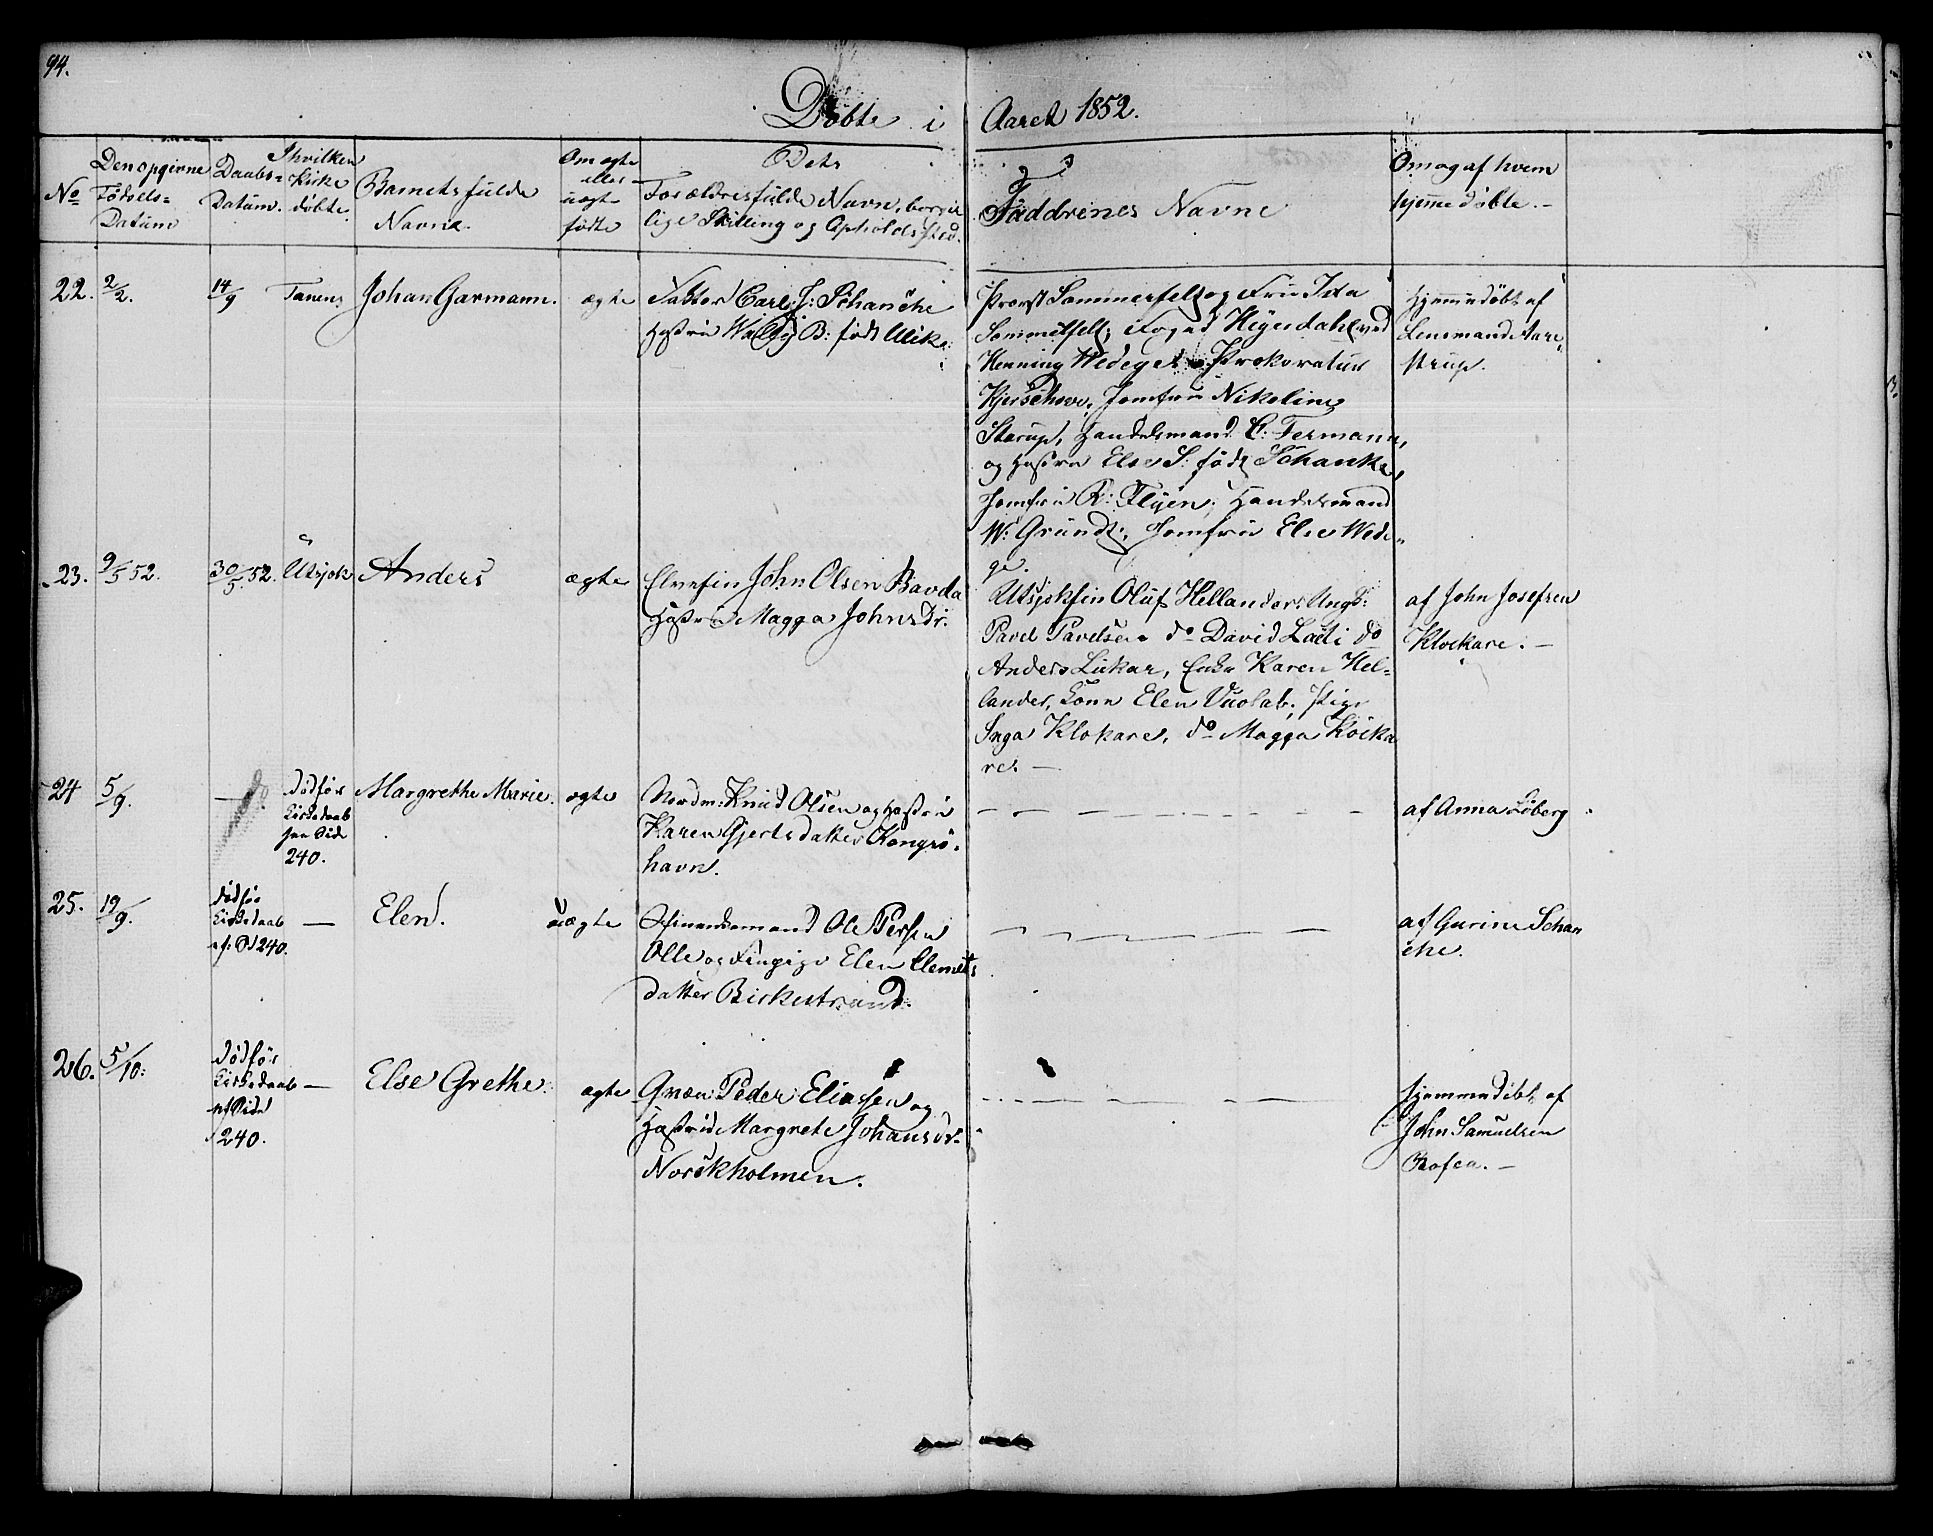 94.
Döbte i Aaret 1852.
No
Den opgivne Födsels-Datum
Daabs-Datum.
I hvilken Kirke döbte.
Barnets fulde Navn.
Om ægte eller uægte födte
Dets Forældres fulde Navn, borgerlige Stilling og Opholdssted.
Faddrenes Navne
Om og af hvem hjemmedöbte.-
22.
2/2.
14/9
Tanens
Johan Garmann.
ægte
Faktor Carl J: Schanche
Hustru B: född Ulik
Provst Sommerfelt og Frue Ida
Sommerfelt, Foged Heyerdahl,
Henning Wedege, Prokurator
Jomfru Nikoline
Starup, Handelsmand C. Fermann,
og Hustru Else S: född Schanke,
Jomfru R: Flyen, Handelsmand
W: Grundt, Jomfru Else Wede-
ge.
Hjemmedöbt af
Lensmand Aare-
strup.
23.
9/5 52.
30/5 52.
Utsjok
Anders
ægte
Elvefin John Olsen Bavda
Hustru Magga Johnsdr.
Utsjokfin Oluf Hellander, Ungk:
Pavel Pavelsen do David Laiti do
Anders Lukar, Enke Karen Hel-
lander, Kone Elen Vuolab, Pige
Inga Klokare, do Magga Klocka
re. -
af John Josefsen
Klockare. -
24
5/9.
-
död för
Kirkedaab
see Side
240.
Margrethe Marie.
ægte
Nordm: Knud Olsen og Hustru
Karen Gjertsdatter Kongsö-
havn.
- - - - - -
af Anna Löberg
25.
19/9.
död för
Kirkedaab
cf: S 240.
-
Elen.
uægte
Ole Persen
Olle og Finpige Elen Clemets
datter Birkestrand.
- - - - - -
af Gurine Schan
che.
26.
5/10.
död för
Kirkedaab
cf Side
240.
-
Else Grethe.
ægte
Qvæn Peder Eliassen og
Hustru Margrete Johansdr.
Norskholmen.
- - - - - -
Hjemmedöbt af
John Samuelsen
Rofea. -